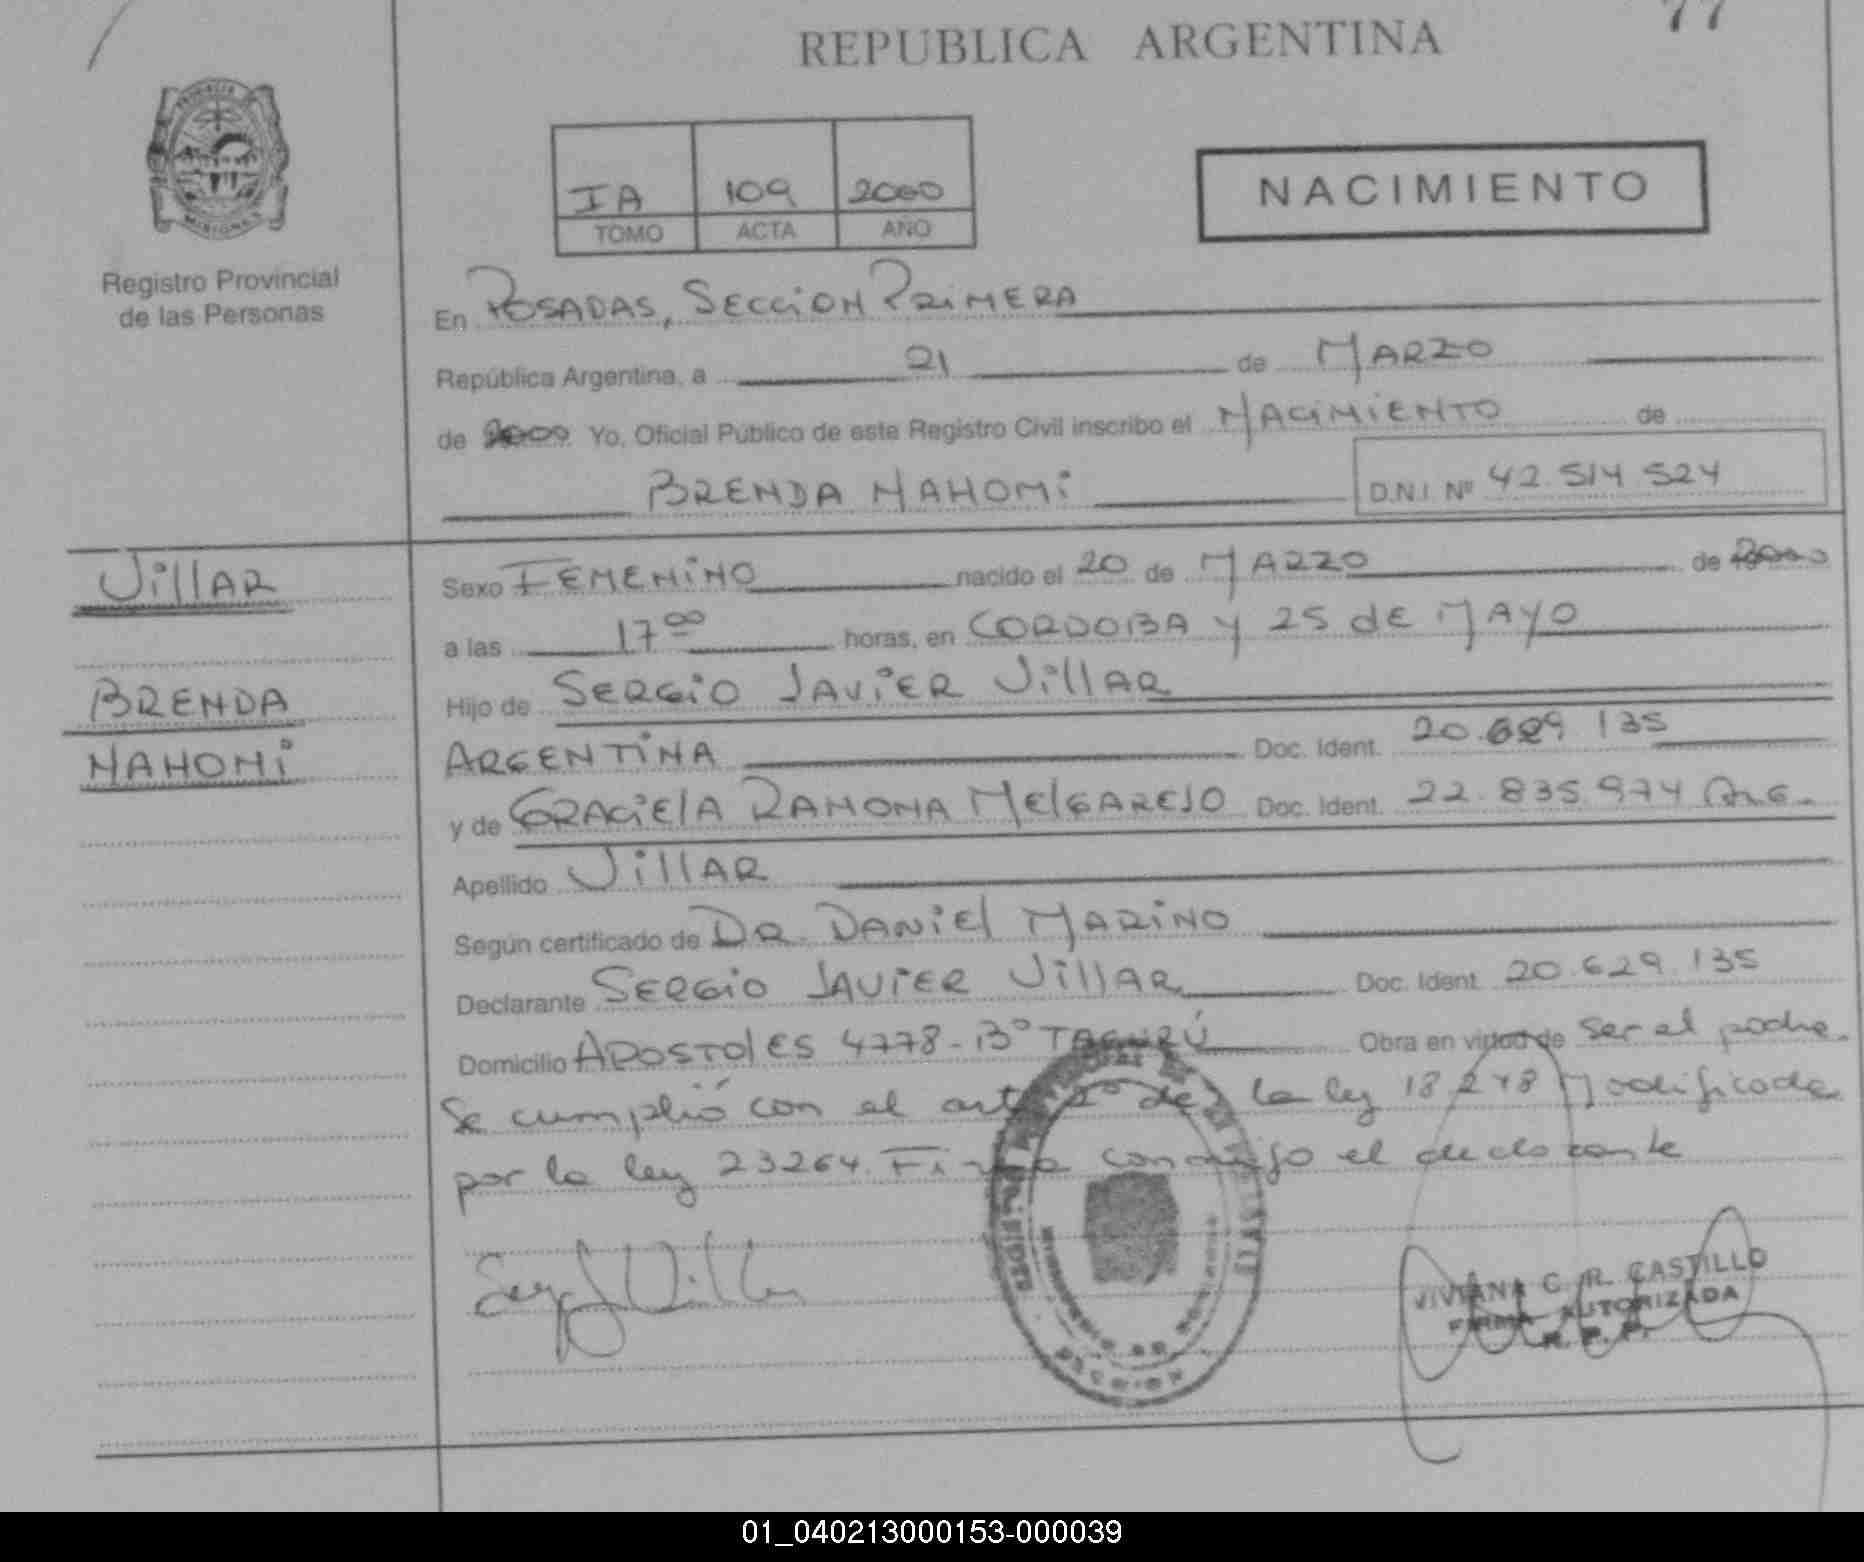 77
REPUBLICA ARGENTINA
IA 109 2000
TOMO ACTA AÑO
NACIMIENTO
Registro Provincial
de las Personas
En POSADAS, SECCION PRIMERA
República Argentina, a 21 de MARZO
de 2000 Yo, Oficial Público de este Registro Civil inscribo el NACIMIENTO de
BRENDA NAHOMI D.N.I. Nº 42.514.524
VillAR
BRENDA
NAHOMI
Sexo FEMENINO nacido el 20 de MARZO de 2000
a las 17 00 horas, en CORDOBA y 25 de MAYO
Hijo de SERGIO JAVIER VillAR
ARGENTINA Doc. Ident. 20.629.135
y de GRACIElA RAMONA MElGAREJO Doc. Ident. 22.835.974 ARG.
Apellido VillAR
Según certificado de DR. DANIEl MARINO
Declarante SERGIO JAVIER VillAR Doc. Ident. 20.629.135
Domicilio APOSTOlES 4778-Bº TACURÚ Obra en virtud de ser el padre.
Se cumplió con el art 2º de la ley 18248 Modificada
por la ley 23264. Firma conmigo el declarante
Sergio Villar
VIVIANA C. R. CASTILLO
FIRMA AUTORIZADA
R. P. P.
01_040213000153-000039